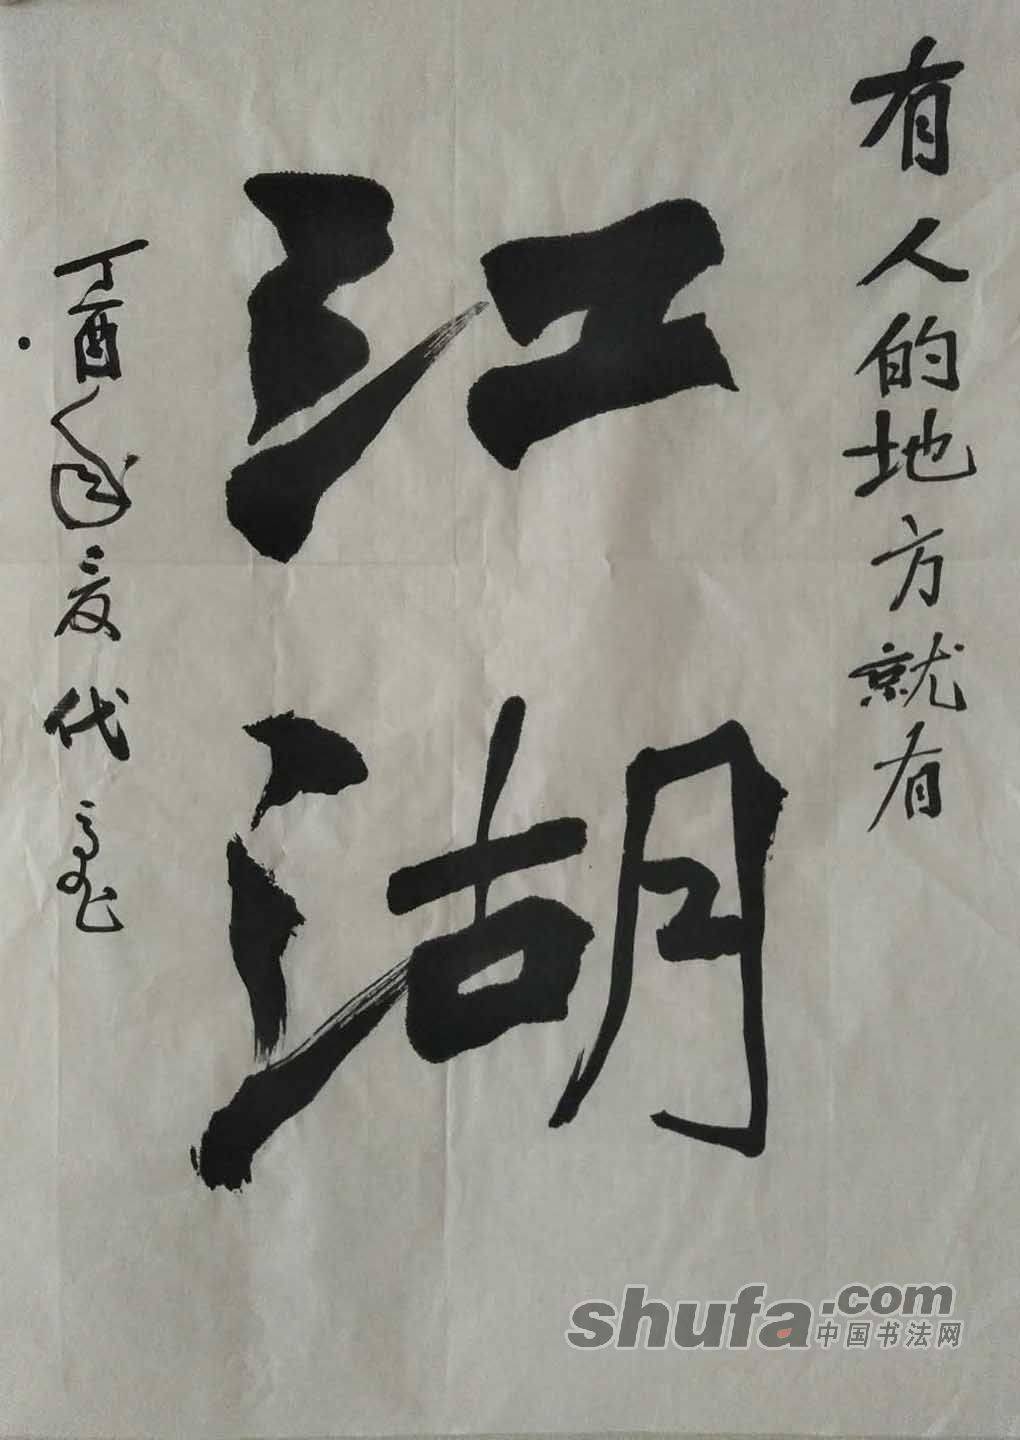 有人的地方就有
江湖
丁酉年夏代
shufa.com
中国书法网